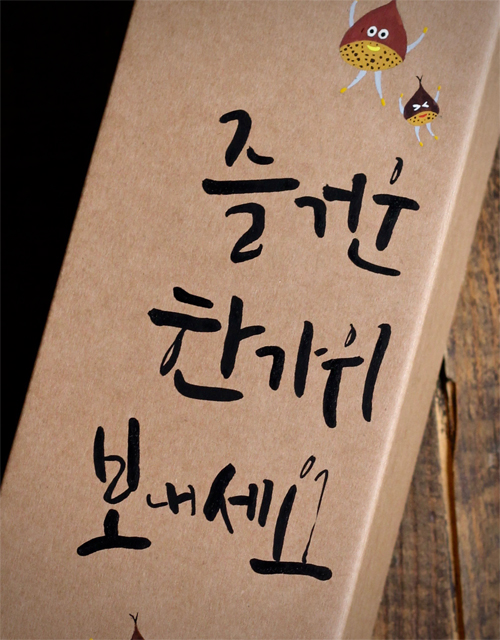 즐거운
한가위
보내세요